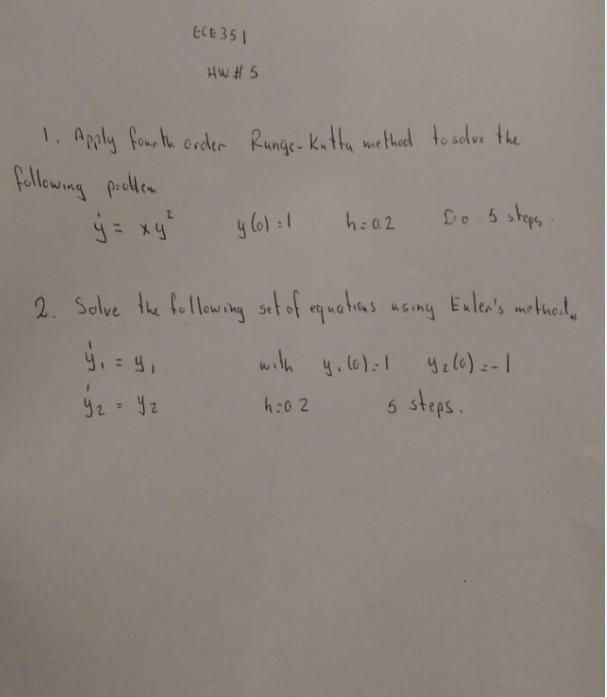 ECE351
HW# 5
1. Apply fourth order Runge-Kutta method to solve the
following problem
ẏ = xy² y(0)=1 h=0.2 Do 5 steps.
2. Solve the following set of equations using Euler's method.
ẏ₁ = y₁ with y₁(0)=1 y₂(0)=-1
ẏ₂ = y₂ h=0.2 5 steps.